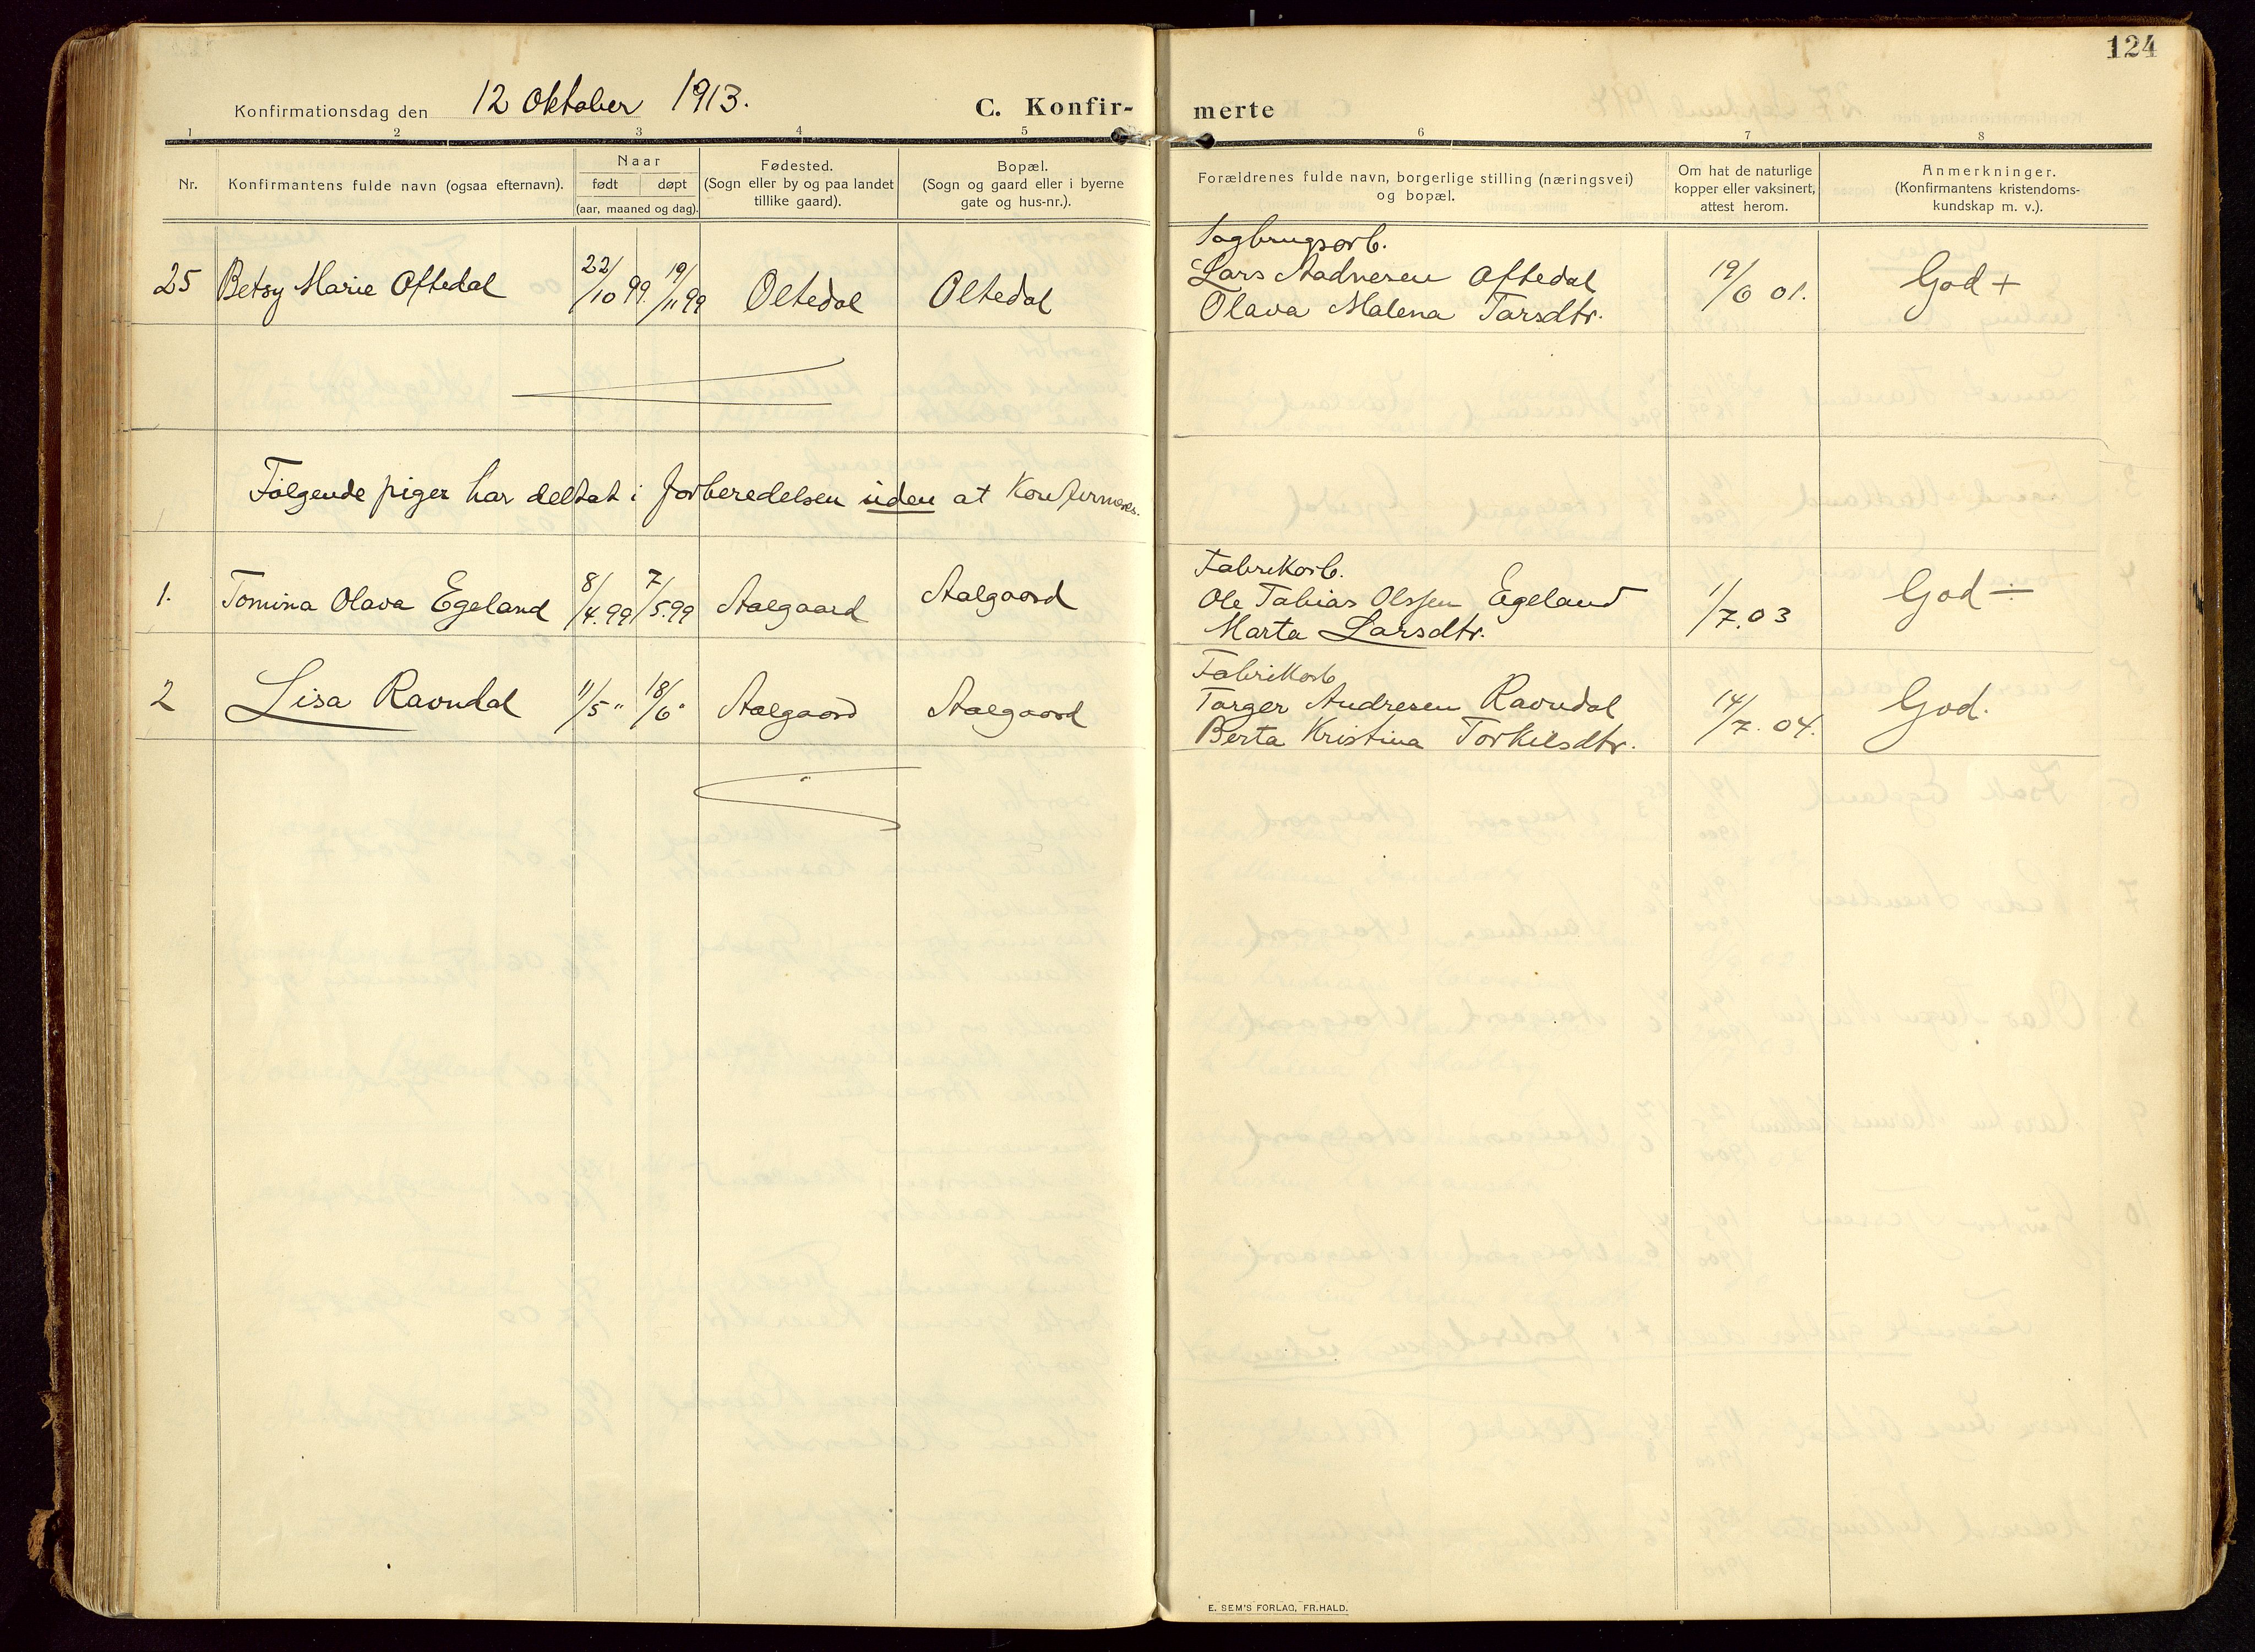 124
Konfirmationsdag den 12 Oktober 1913. C. Konfir- merte
1 2 3 4 5 6 7 8
Nr.
Konfirmantens fulde navn (ogsaa efternavn).
Naar
født døpt
(aar, maaned og dag).
Fødested.
(Sogn eller by og paa landet
tillike gaard).
Bopæl.
(Sogn og gaard eller i byerne
gate og hus-nr.).
Forældrenes fulde navn, borgerlige stilling (næringsvei)
og bopæl.
Om hat de naturlige
kopper eller vaksinert,
attest herom.
Anmerkninger.
(Konfirmantens kristendoms-
kundskap m. v.).
Sagbrugsarb.
25 Betsy Marie Oftedal 22/10 99. 19/11 99 Oltedal Oltedal Lars Aadnesen Oftedal 19/6 01. God +
Olava Malena Tarsdtr.
Følgende piger har deltat i forberedelsen uden at Konfirmeres.
Fabrikarb.
1. Tomina Olava Egeland 8/4.99 7/5.99 Aalgaard Aalgaard Ole Tobias Olssen Egeland 1/7.03 God ÷
Marta Larsdtr.
Fabrikarb
2 Lisa Ravndal 11/5 " 18/6 " Aalgaard Aalgaard Targer Andresen Ravndal 14/7. 04. God.
Berta Kristina Torkilsdtr.
E. SEM'S FORLAG, FR.HALD.